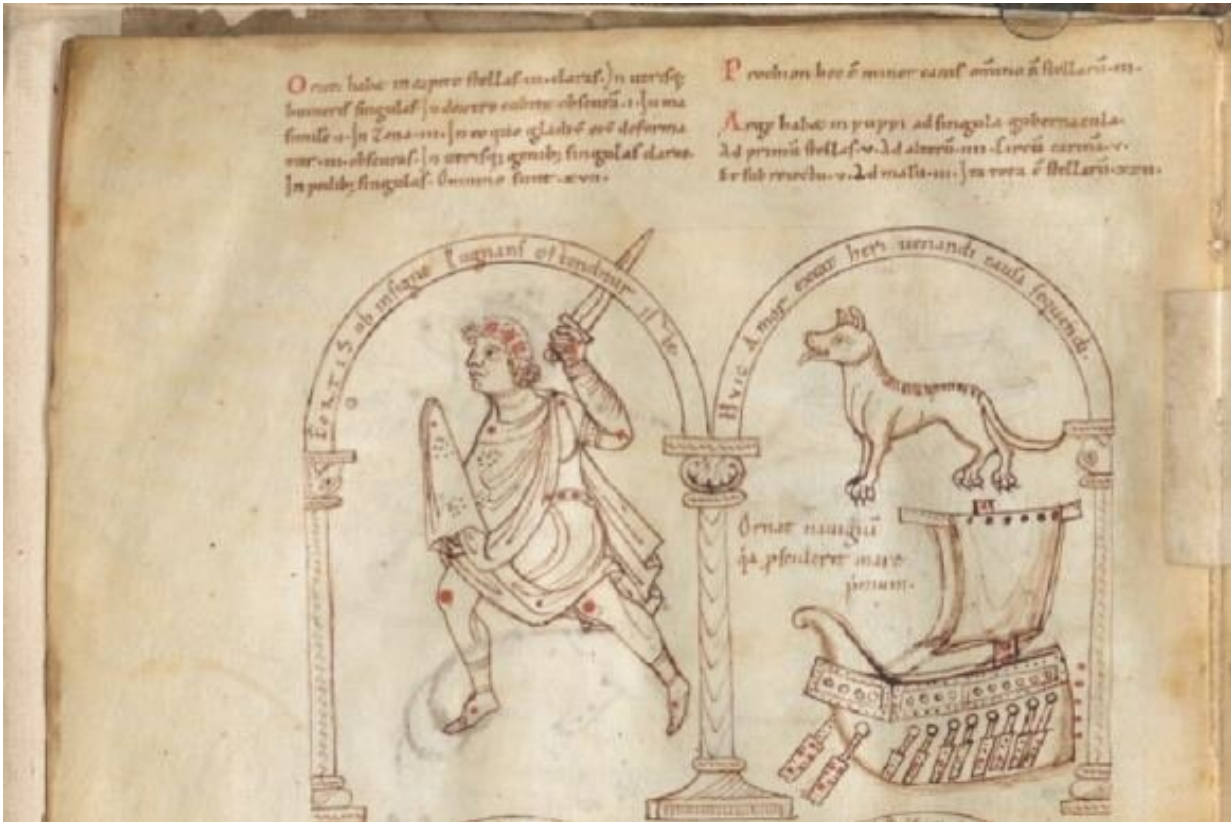 Orion habet in stellas .iii. claras. In utrisq;
humeris singulas. In dextro cubito obscurā .i. In ma
simile .i. In Zona .iii. In eo quo gladiū deforma
tur .iii. obscuras. In utrisq; genib; singulas claras.
In pedib; singulas. Omnino sunt .xvii.
Prochion hoc ē minor canis omnino ē stellarū .iii.
Argo habet in puppi ad singula gobernacula.
Ad primū stellas .v. Ad alterū .iiii. Circū carinā .v.
Et sub .v. Ad malū .iii. Ita tota ē stellarū
FORTIS ob insigne pugnans ostenditur ille
Huic Amor heri uenandi causa sequendi.
Ornat nauigiū
mare
primum.